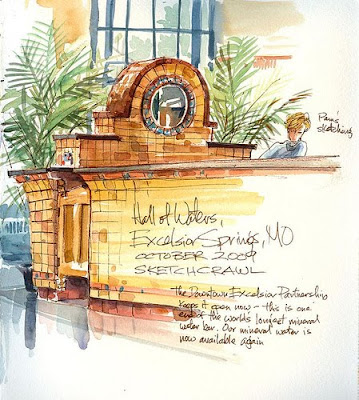 Pam's
sketching
Hall of Waters,
Excelsior Springs, MO
OCTOBER 2009
SKETCHCRAWL
The Downtown Excelsior Partnership
keeps it open now - this is one
end of the worlds longest mineral
water bar. Our mineral water is
now available again